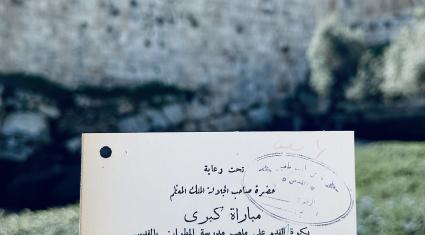 تحت رعاية
حضرة صاحب الجلالة الملك المعظم
مباراة كبرى
بكرة القدم على ملعب مدرسة المطران بالقدس